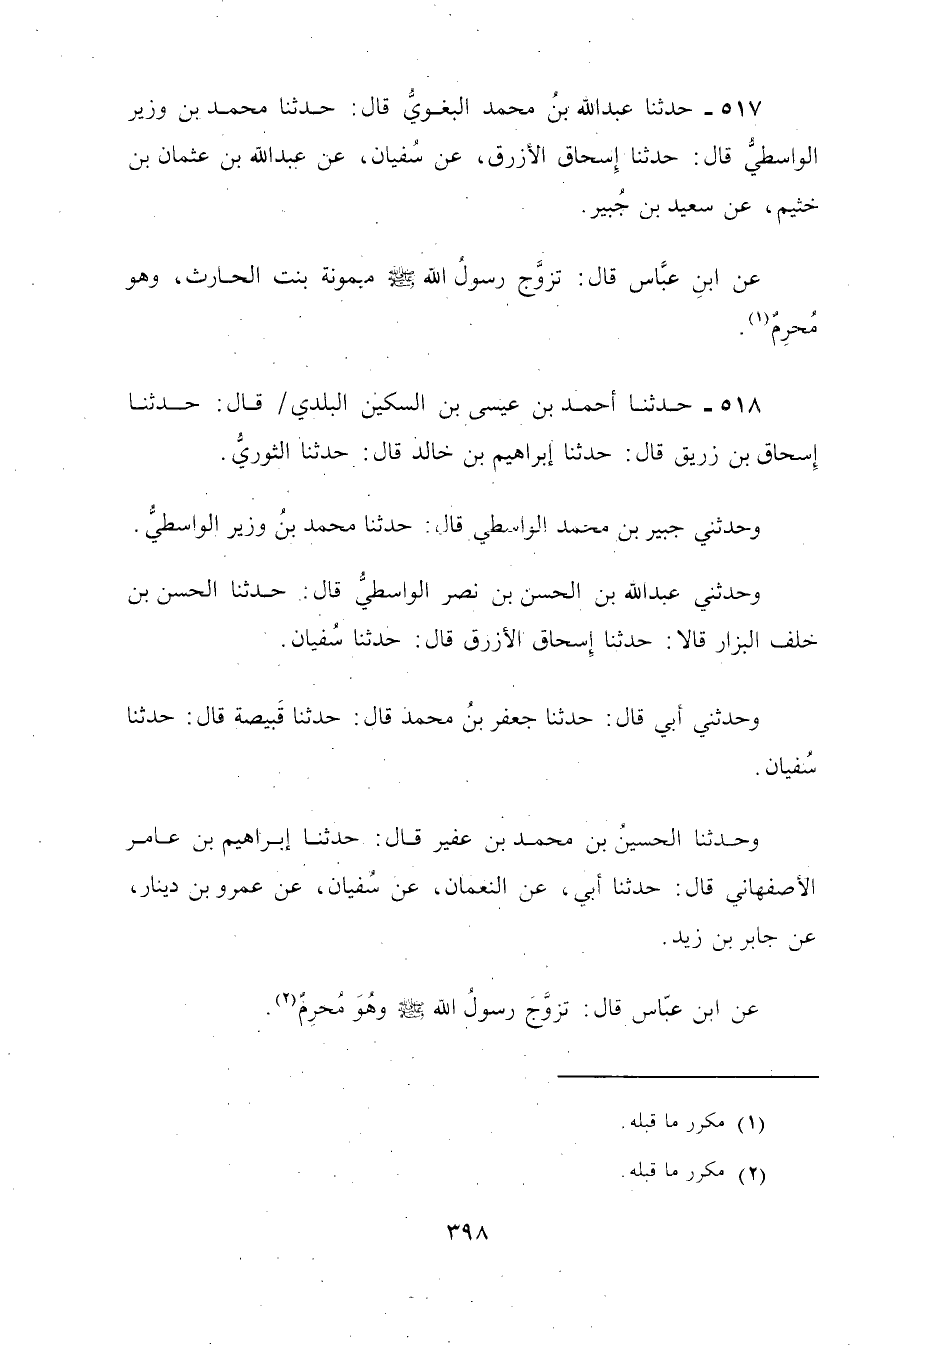 ٥١٧ ـ حدثنا عبدالله بنُ محمد البغـويُّ قال: حـدثنا محمـد بن وزير
الواسطيُّ قال: حدثنا إسحاق الأزرق، عن سُفيان، عن عبدالله بن عثمان بن
خثيم، عن سعيد بن جُبير.
عن ابنِ عبَّاس قال: تزوَّج رسولُ الله ﷺ ميمونة بنت الحارث، وهو
مُحرِمٌ(١).
٥١٨ ـ حـدثنـا أحمـد بن عيسى بن السكين البلدي/ قـال: حــدثنـا
إسحاق بن زريق قال: حدثنا إبراهيم بن خالد قال: حدثنا الثوريُّ.
وحدثني جبير بن محمد الواسطي قال: حدثنا محمد بنُ وزير الواسطيُّ.
وحدثني عبدالله بن الحسن بن نصر الواسطيُّ قال: حـدثنا الحسن بن
خلف البزار قالا: حدثنا إسحاق الأزرق قال: حدثنا سُفيان.
وحدثني أبي قال: حدثنا جعفر بنُ محمد قال: حدثنا قَبيصة قال: حدثنا
سُفيان.
وحـدثنا الحسينُ بن محمـد بن عفير قـال: حدثنـا إبـراهيم بن عـامـر
الأصفهاني قال: حدثنا أبي، عن النعمان، عن سُفيان، عن عمرو بن دينار،
عن جابر بن زيد.
عن ابن عبّاس قال: تزوَّجَ رسولُ الله ﷺ وهُوَ مُحرِمٌ(٢).
(١) مكرر ما قبله.
(٢) مكرر ما قبله.
٣٩٨